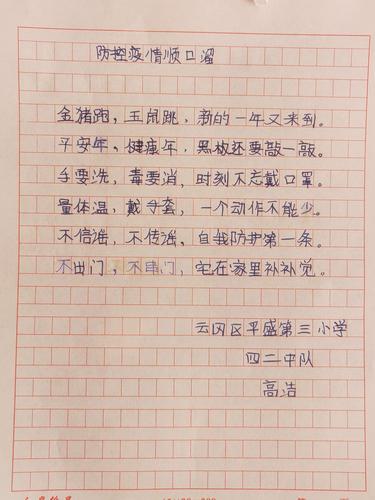 防控疫情顺口溜
金猪跑，玉鼠跳，新的一年又来到。
平安年，健康年，黑板还要敲一敲。
手要洗，毒要消，时刻不忘戴口罩。
量体温，戴手套，一个动作不能少。
不信谣，不传谣，自我防护第一条。
不出门，不串门，宅在家里补补觉。
云冈区平盛第三小学
四二中队
高浩